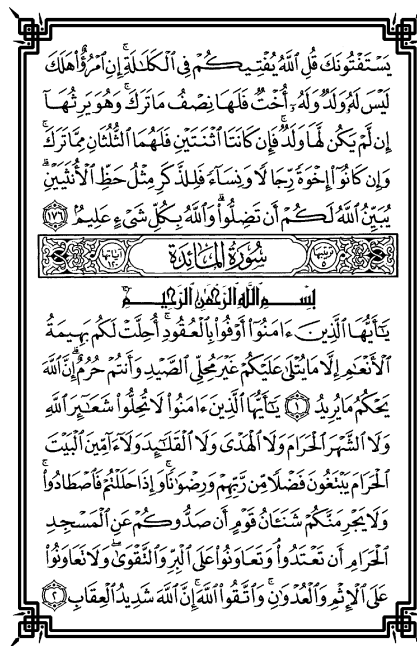 يَسْتَفْتُونَكَ قُلِ ٱللَّهُ يُفْتِيكُمْ فِى ٱلْكَلَٰلَةِ ۚ إِنِ ٱمْرُؤٌا۟ هَلَكَ
لَيْسَ لَهُۥ وَلَدٌ وَلَهُۥٓ أُخْتٌ فَلَهَا نِصْفُ مَا تَرَكَ ۚ وَهُوَ يَرِثُهَآ
إِن لَّمْ يَكُن لَّهَا وَلَدٌ ۚ فَإِن كَانَتَا ٱثْنَتَيْنِ فَلَهُمَا ٱلثُّلُثَانِ مِمَّا تَرَكَ ۚ
وَإِن كَانُوٓا۟ إِخْوَةً رِّجَالًا وَنِسَآءً فَلِلذَّكَرِ مِثْلُ حَظِّ ٱلْأُنثَيَيْنِ ۗ
يُبَيِّنُ ٱللَّهُ لَكُمْ أَن تَضِلُّوا۟ ۗ وَٱللَّهُ بِكُلِّ شَىْءٍ عَلِيمٌۢ ١٧٦
ترتيبها ٥ سُورَةُ المَائِدَة آياتها ١٢٠
بِسْمِ ٱللَّهِ ٱلرَّحْمَٰنِ ٱلرَّحِيمِ
يَٰٓأَيُّهَا ٱلَّذِينَ ءَامَنُوٓا۟ أَوْفُوا۟ بِٱلْعُقُودِ ۚ أُحِلَّتْ لَكُم بَهِيمَةُ
ٱلْأَنْعَٰمِ إِلَّا مَا يُتْلَىٰ عَلَيْكُمْ غَيْرَ مُحِلِّى ٱلصَّيْدِ وَأَنتُمْ حُرُمٌ ۗ إِنَّ ٱللَّهَ
يَحْكُمُ مَا يُرِيدُ ١ يَٰٓأَيُّهَا ٱلَّذِينَ ءَامَنُوا۟ لَا تُحِلُّوا۟ شَعَٰٓئِرَ ٱللَّهِ
وَلَا ٱلشَّهْرَ ٱلْحَرَامَ وَلَا ٱلْهَدْىَ وَلَا ٱلْقَلَٰٓئِدَ وَلَآ ءَآمِّينَ ٱلْبَيْتَ
ٱلْحَرَامَ يَبْتَغُونَ فَضْلًا مِّن رَّبِّهِمْ وَرِضْوَٰنًا ۚ وَإِذَا حَلَلْتُمْ فَٱصْطَادُوا۟ ۚ
وَلَا يَجْرِمَنَّكُمْ شَنَـَٔانُ قَوْمٍ أَن صَدُّوكُمْ عَنِ ٱلْمَسْجِدِ
ٱلْحَرَامِ أَن تَعْتَدُوا۟ ۘ وَتَعَاوَنُوا۟ عَلَى ٱلْبِرِّ وَٱلتَّقْوَىٰ ۖ وَلَا تَعَاوَنُوا۟
عَلَى ٱلْإِثْمِ وَٱلْعُدْوَٰنِ ۚ وَٱتَّقُوا۟ ٱللَّهَ ۖ إِنَّ ٱللَّهَ شَدِيدُ ٱلْعِقَابِ ٢